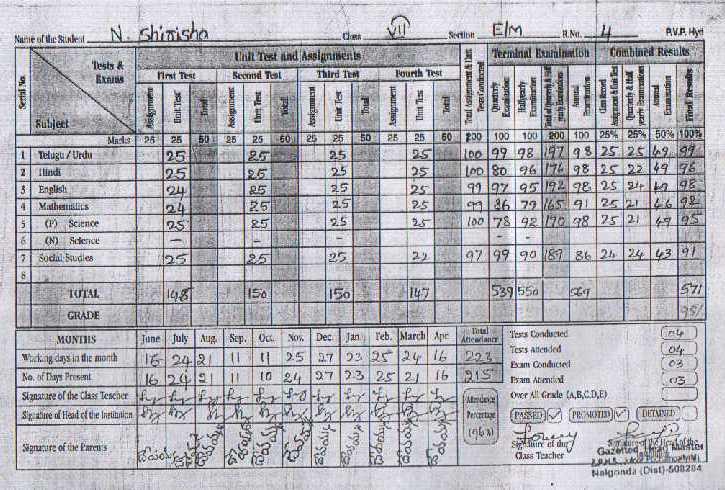 Name of the Student N. Shirisha Class VII Section E/M R.No. 4 P.V.P. Hyd
Serial No. Subject Tests & Exams Unit Test and Assignments Total Assignment & Unit Tests Conducted Terminal Examination Combined Results
First Test Second Test Third Test Fourth Test
Assignment Unit Test Total Assignment Unit Test Total Assignment Unit Test Total Assignment Unit Test Total Quarterly Examination Halfyearly Examination Annual Examination Annual Examination Final Results
Marks 25 25 50 25 25 50 25 25 50 25 25 50 200 100 100 200 100 25% 25% 50% 100%
1 Telugu / Urdu 25 25 25 25 100 99 98 197 98 25 25 49 99
2 Hindi 25 25 25 25 100 80 96 176 98 25 22 49 96
3 English 24 25 25 25 99 97 95 192 98 25 24 49 98
4 Mathematics 24 25 25 25 99 86 79 165 91 25 21 46 92
5 (P) Science 25 25 25 25 100 78 92 170 98 25 21 49 95
6 (N) Science - - - - - -
7 Social Studies 25 25 25 22 97 99 90 189 86 24 24 43 91
8
TOTAL 148 150 150 147 539 550 569 571
GRADE
MONTHS June July Aug. Sep. Oct. Nov. Dec. Jan Feb. March Apr. Total Attendance
Working days in the month 16 24 21 11 11 25 27 23 25 24 16 223
No. of Days Present 16 24 21 11 10 24 27 23 25 21 16 215
Signature of the Class Teacher
Signature of Head of the Institution
Signature of the Parents
Attendance Percentage
Tests Conducted 04
Tests Attended 04
Exam Conducted 03
Exam Attended 03
Over All Grade (A,B,C,D,E)
PASSED ✓ PROMOTED ✓ DETAINED
Signature of the Class Teacher
Signature of the Head of the
Gazetted Head Master
Nalgonda (Dist)-508284